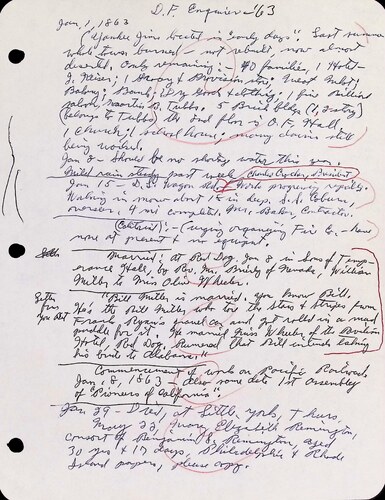 D.F. Enquirer '63
Jan. 1, 1863
("Yankee Jims located in early days". Last summer
whole town burned - not rebuilt, now almost
deserted. Only remaining: 40 families, 1 Hotel -
J. Keiser; 1 Grocery & Provision store; Meat Mkt;
Bakery; Bank; 1 Dry Goods & clothing; 1 fine Billiard
saloon, Martin D. Tubbs. 5 Brick Bldgs (1, 2 story)
belongs to Tubbs, the 2nd floor is O.F. Hall
1 church, 1 school house; many claims still
being worked.
Jan 8 - Should be no shortage water this year.
Mild rain steady past week. Charles Crocker, President
Jan. 15 - D.L. Wagon Rd. - Work progressing rapidly.
Walling is now about 15 in deep. S.A. Coburn,
overseer. 4 mi completed. Geo. Baker Contractor.
(Editorial): - Urging organizing Fire Co. - have
none at present & no equipmt.
Married: at Red Dog, Jan 8 in Sons of Temp-
erance Hall, by Rev. Mr. Brierly of Nevada, William
Mills to Miss Olive Wheeler.
Letter
from
You Bet
"Bill Mills is married. You know Bill.
He's the Bill Mills who tore the Stars & Stripes from
Frank Ryan's parade car and got rolled in a mud
puddle for it. He married Miss Wheeler of the Provision
Hotel, Red Dog. Rumored that Bill intends taking
his bride to Alabama."
Commencement of work on Pacific Railroad,
Jan. 8, 1863 - Also same date 1st assembly
of "Pioneers of California".
Jan 29 - Died, at Little York, Thurs.
Mary Elizabeth Remington,
consort of Benjamin F. Remington, aged
30 yrs & 17 days. Philadelphia & Rhode
Island papers, please copy.